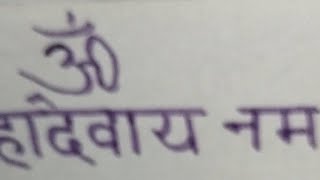 ॐ
हादेवाय नम